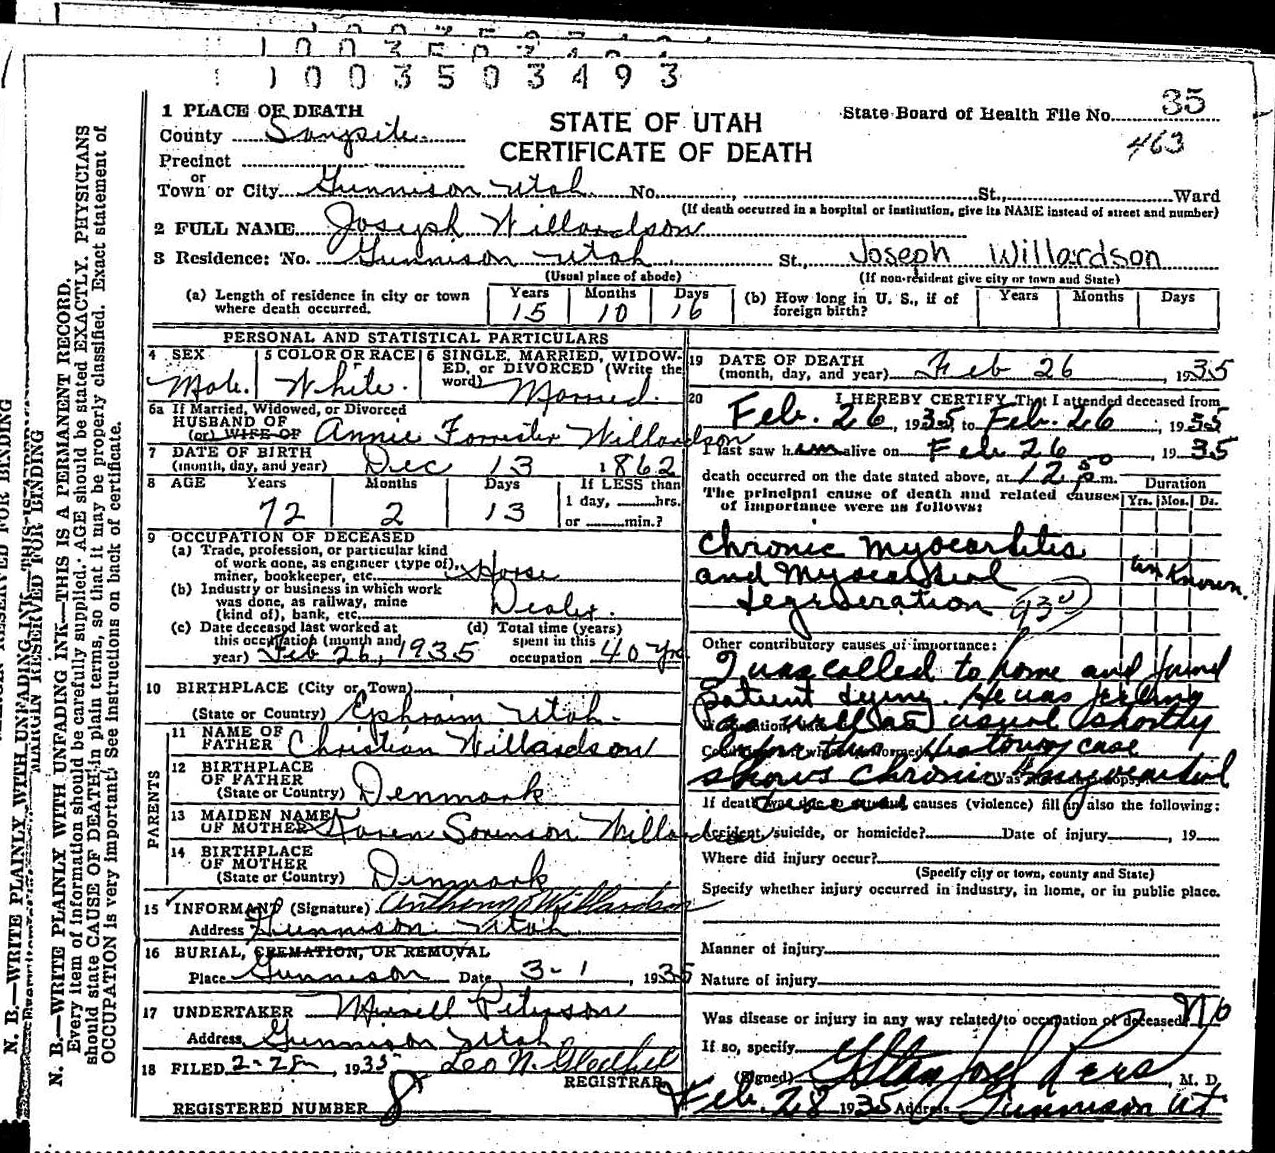 1003503493
1 PLACE OF DEATH
STATE OF UTAH
CERTIFICATE OF DEATH
State Board of Health File No. 35
463
County Sanpete
Precinct
or
Town or City Gunnison Utah No. St., Ward
(If death occurred in a hospital or institution, give its NAME instead of street and number)
2 FULL NAME Joseph Willardson
3 Residence: No. Gunnison Utah St., Joseph Willardson
(Usual place of abode) (If non-resident give city or town and State)
(a) Length of residence in city or town where death occurred. Years 15 Months 10 Days 16
(b) How long in U. S., if of foreign birth? Years Months Days
PERSONAL AND STATISTICAL PARTICULARS
4 SEX
Male.
5 COLOR OR RACE
White.
6 SINGLE, MARRIED, WIDOWED, or DIVORCED (Write the word) Married.
6a If Married, Widowed, or Divorced
HUSBAND OF
(or) WIFE OF Annie Forrester Willardson
7 DATE OF BIRTH
(month, day, and year) Dec 13 1862
8 AGE Years 72 Months 2 Days 13
If LESS than
1 day, hrs.
or min.?
9 OCCUPATION OF DECEASED
(a) Trade, profession, or particular kind
of work done, as engineer (type of),
miner, bookkeeper, etc. Horse
(b) Industry or business in which work
was done, as railway, mine
(kind of), bank, etc. Dealer.
(c) Date deceased last worked at
this occupation (month and
year) Feb 26, 1935
(d) Total time (years)
spent in this
occupation 40 yrs
10 BIRTHPLACE (City or Town)
(State or Country) Ephraim Utah.
PARENTS
11 NAME OF
FATHER Christian Willardson
12 BIRTHPLACE
OF FATHER
(State or Country) Denmark
13 MAIDEN NAME
OF MOTHER Karen Sorenson Willardson
14 BIRTHPLACE
OF MOTHER
(State or Country) Denmark
15 INFORMANT (Signature) Anthony Willardson
Address Gunnison Utah
16 BURIAL, CREMATION, OR REMOVAL
Place Gunnison Date 3-1, 1935
17 UNDERTAKER Peterson
Address Gunnison Utah
18 FILED 2-28, 1935 Leo N. Gledhill
REGISTRAR
REGISTERED NUMBER 8
19 DATE OF DEATH
(month, day, and year) Feb 26, 1935
20 I HEREBY CERTIFY, That I attended deceased from
Feb. 26, 1935, to Feb. 26, 1935
I last saw him alive on Feb 26, 1935
death occurred on the date stated above, at 12 50 p.m.
The principal cause of death and related causes
of importance were as follows:
Duration
Yrs. Mos. Ds.
Chronic myocarditis
and Myocardial
degeneration
unknown.
Other contributory causes of importance:
I was called to home and found
patient dying. He was feeling
as well as usual shortly
History case
shows Chronic myocardial
If death was due to external causes (violence) fill in also the following:
Accident, suicide, or homicide? Date of injury, 19
Where did injury occur?
(Specify city or town, county and State)
Specify whether injury occurred in industry, in home, or in public place.
Manner of injury
Nature of injury
Was disease or injury in any way related to occupation of deceased No
If so, specify
(Signed) , M. D.
Feb. 28 1935 Address Gunnison Ut
N. B.—WRITE PLAINLY WITH UNFADING INK—THIS IS A PERMANENT RECORD.
Every item of information should be carefully supplied. AGE should be stated EXACTLY. PHYSICIANS
should state CAUSE OF DEATH in plain terms, so that it may be properly classified. Exact statement of
OCCUPATION is very important. See instructions on back of certificate.
MARGIN RESERVED FOR BINDING